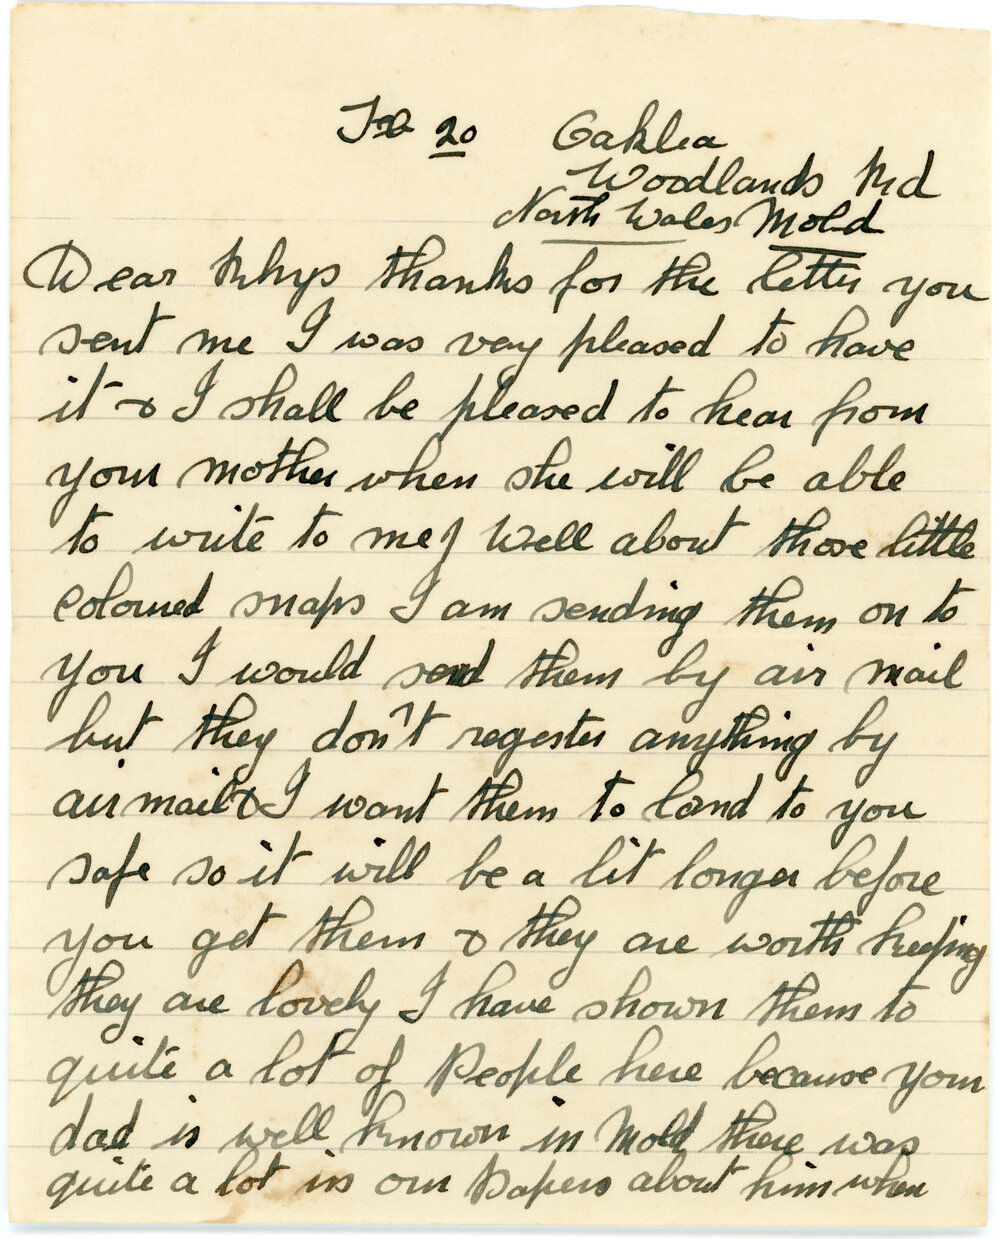 Feb 20 Oaklea
Woodlands Rd
North Wales Mold
Dear Rhys thanks for the letter you
sent me I was very pleased to have
it & I shall be pleased to hear from
your mother when she will be able
to write to me Well about those little
coloured snaps I am sending them on to
you I would send them by air mail
but they don't regester anything by
air mail & I want them to land to you
safe so it will be a bit longer before
you get them & they are worth keeping
they are lovely I have shown them to
quite a lot of People here because your
dad is well known in Mold there was
quite a lot in our Papers about him when